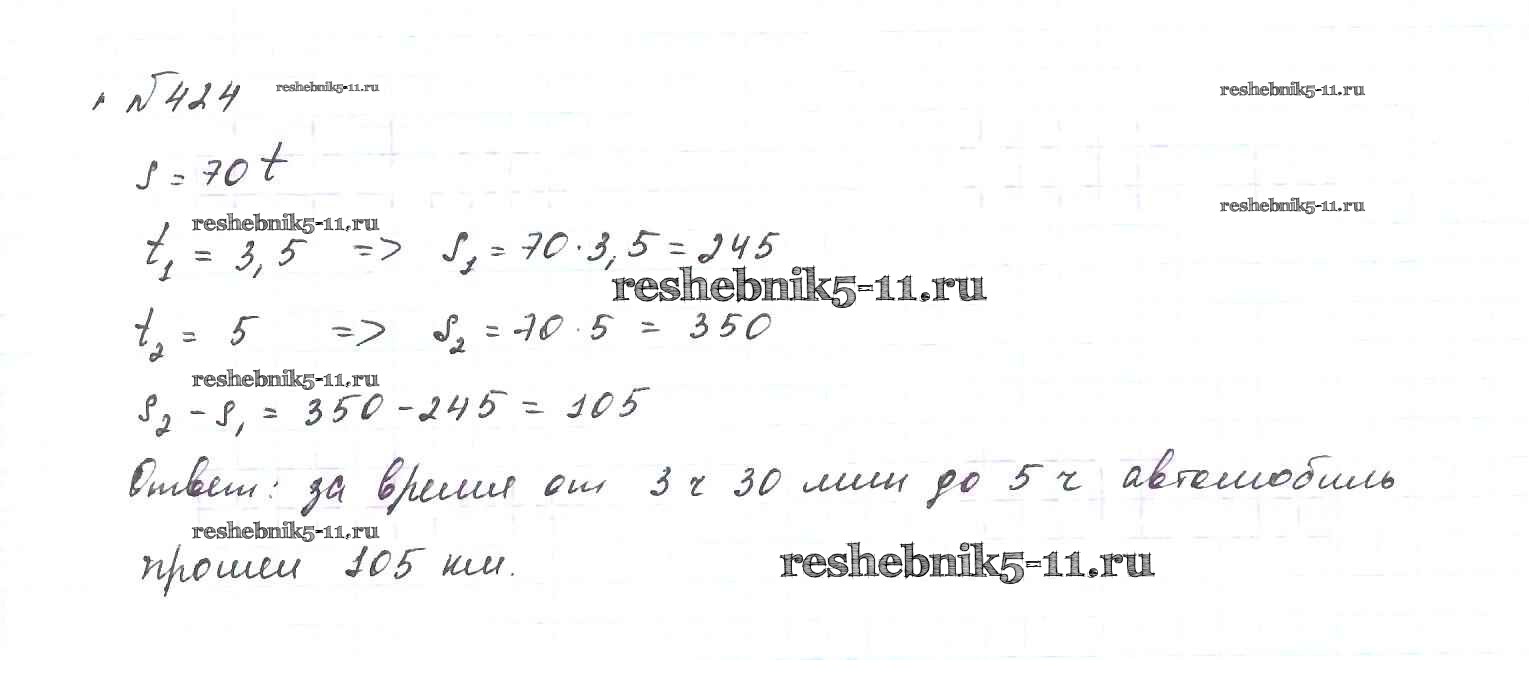 №424 reshebnik5-11.ru reshebnik5-11.ru
s = 70t
reshebnik5-11.ru reshebnik5-11.ru
t₁ = 3,5 => s₁ = 70·3,5 = 245
reshebnik5-11.ru
t₂ = 5 => s₂ = 70·5 = 350
reshebnik5-11.ru
s₂ - s₁ = 350 - 245 = 105
Ответ: за время от 3 ч 30 мин до 5 ч автомобиль
reshebnik5-11.ru
прошел 105 км.
reshebnik5-11.ru